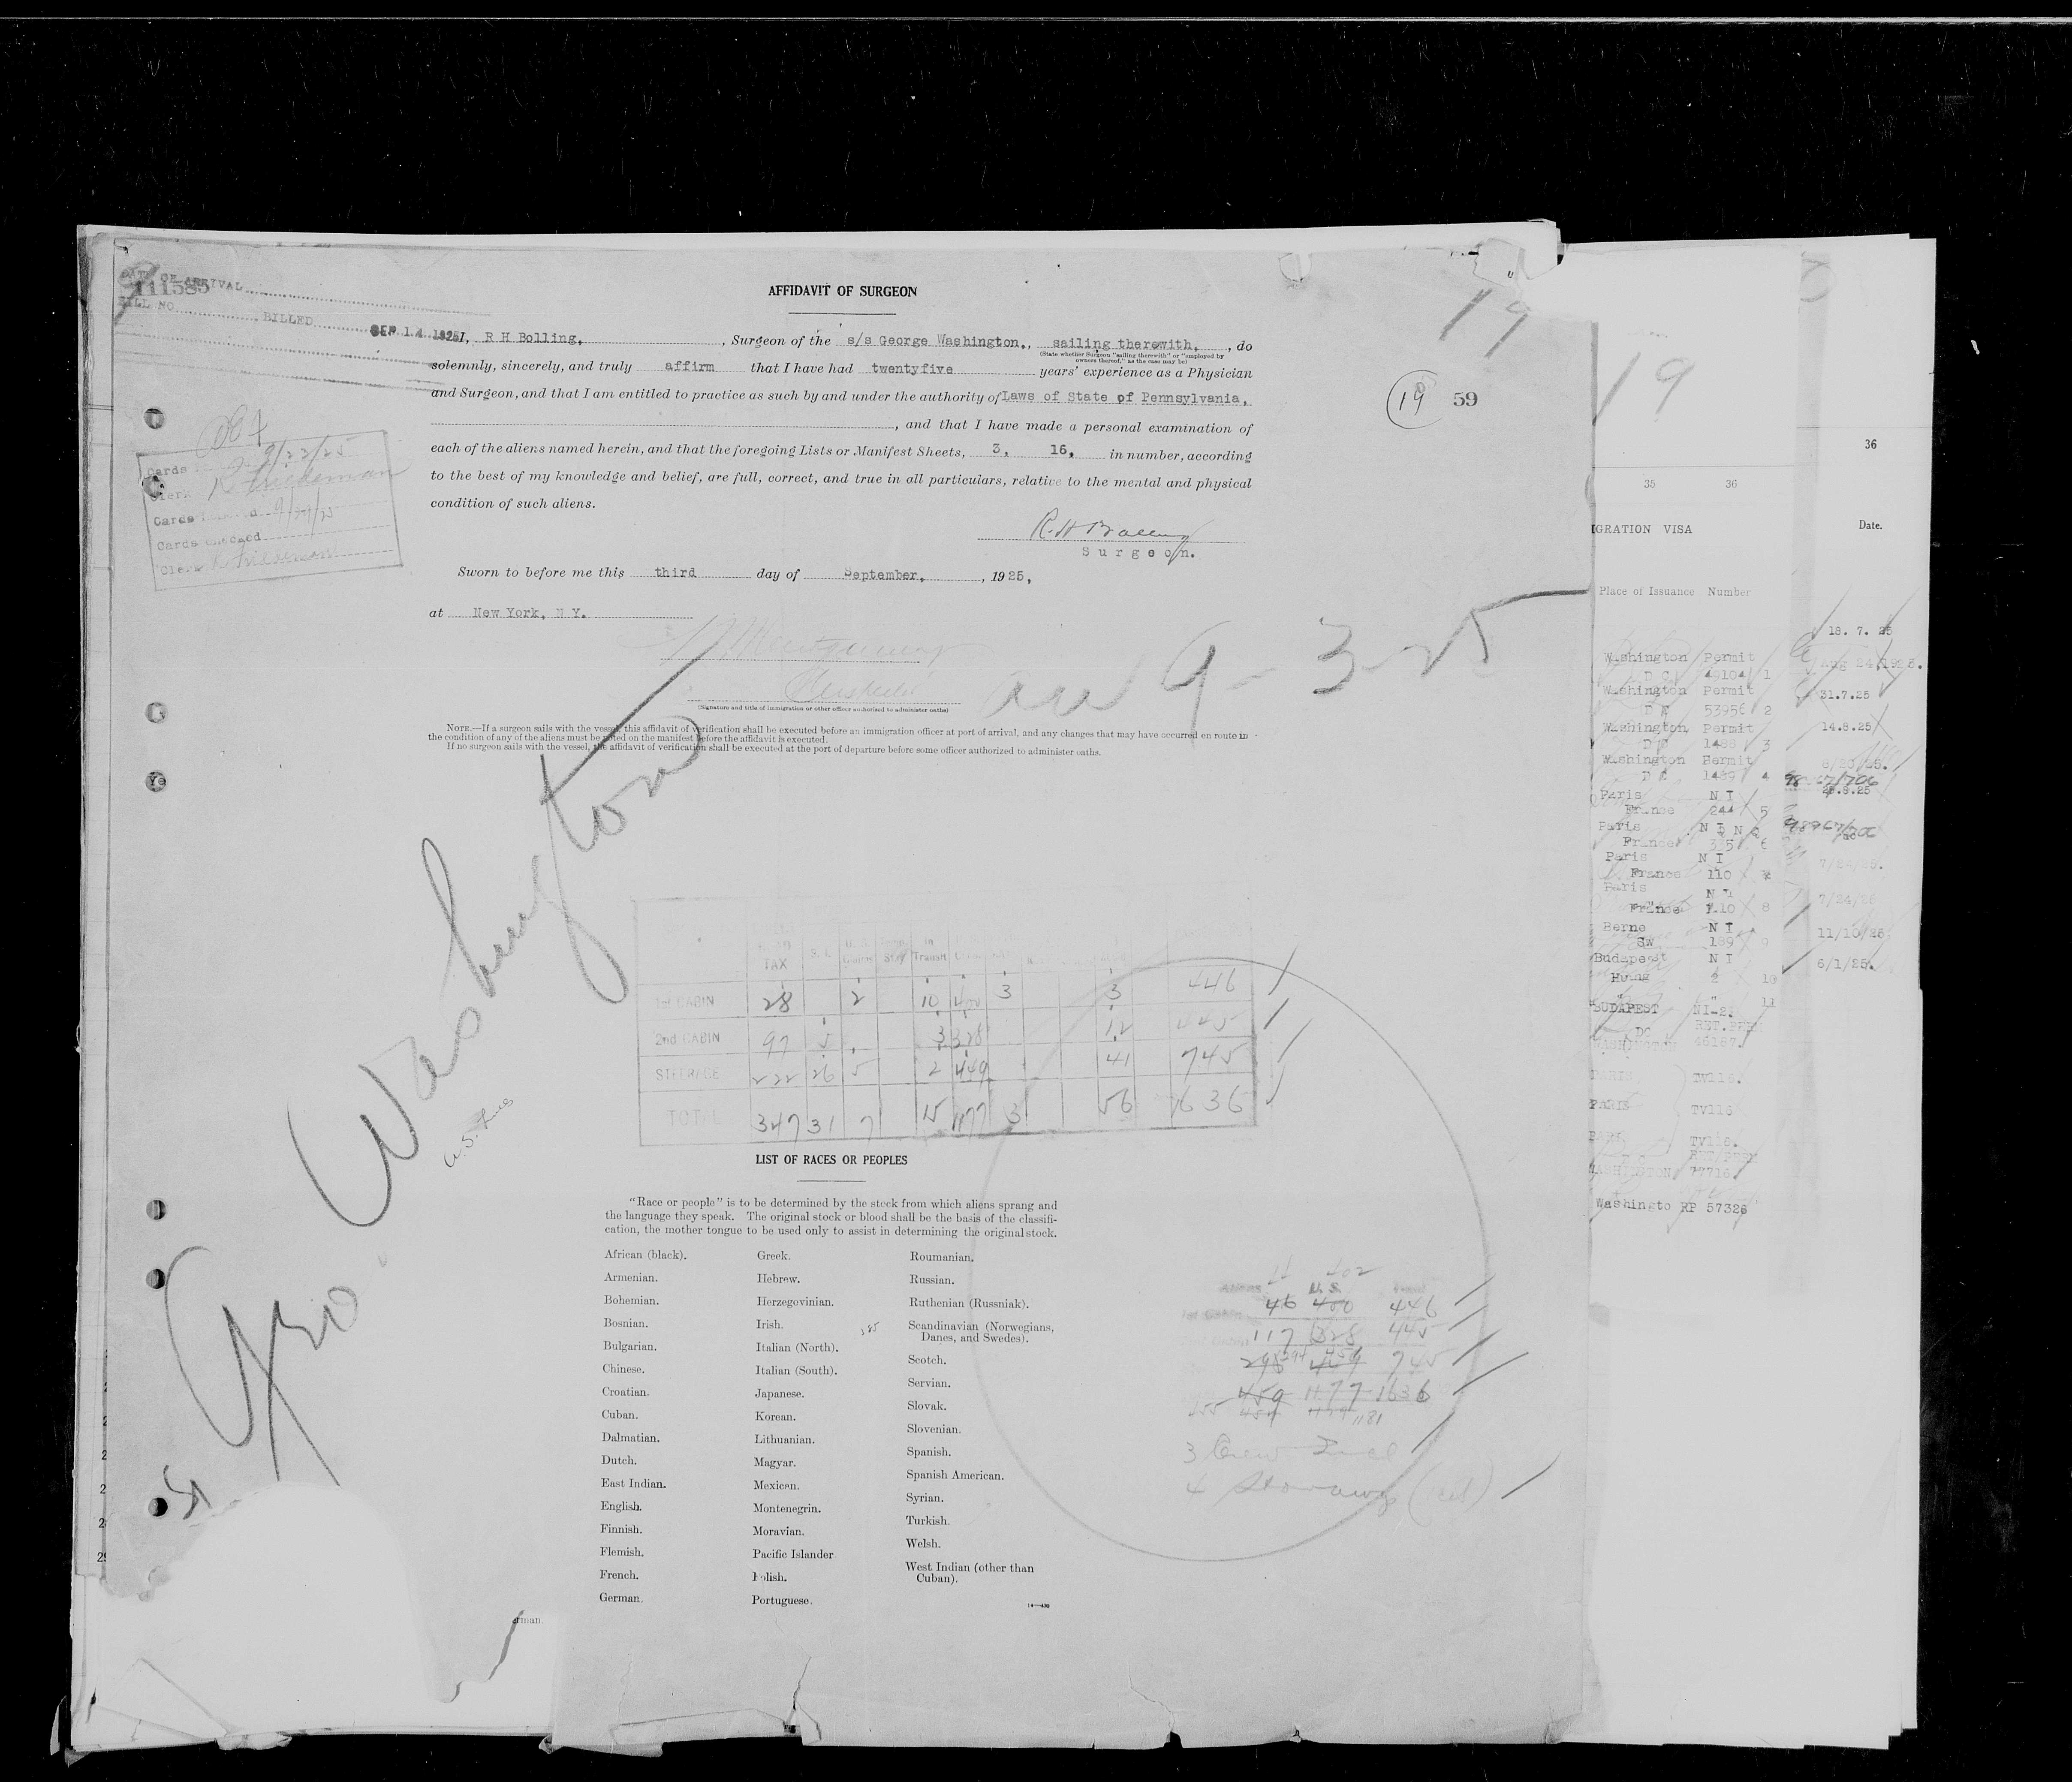 111585
BILL NO.
BILLED
SEP 14 1925
AFFIDAVIT OF SURGEON
19
I, R H Bolling, , Surgeon of the s/s George Washington., sailing therewith, , do
(State whether Surgeon "sailing therewith" or "employed by
owners thereof," as the case may be)
solemnly, sincerely, and truly affirm that I have had twentyfive years' experience as a Physician
and Surgeon, and that I am entitled to practice as such by and under the authority of Laws of State of Pennsylvania,
19 59
, and that I have made a personal examination of
each of the aliens named herein, and that the foregoing Lists or Manifest Sheets, 3, 16, in number, according
to the best of my knowledge and belief, are full, correct, and true in all particulars, relative to the mental and physical
condition of such aliens.
Surgeon.
Sworn to before me this third day of September, , 1925,
at New York, N Y.
9-3-25
(Signature and title of immigration or other officer authorized to administer oaths)
NOTE.—If a surgeon sails with the vessel, this affidavit of verification shall be executed before an immigration officer at port of arrival, and any changes that may have occurred en route in
the condition of any of the aliens must be noted on the manifest before the affidavit is executed.
If no surgeon sails with the vessel, the affidavit of verification shall be executed at the port of departure before some officer authorized to administer oaths.
Cards 9/22/25
Clerk
Cards
Cards checked
Clerk
Geo. Washington
TAX S. I. U. S. In Transit
1st CABIN 28 2 10 400 3 3 446
2nd CABIN 97 5 3 328 12 445
STEERAGE 222 26 5 2 449 41 745
TOTAL 347 31 7 15 1177 3 56 1636
LIST OF RACES OR PEOPLES
"Race or people" is to be determined by the stock from which aliens sprang and
the language they speak. The original stock or blood shall be the basis of the classifi-
cation, the mother tongue to be used only to assist in determining the original stock.
African (black).
Armenian.
Bohemian.
Bosnian.
Bulgarian.
Chinese.
Croatian.
Cuban.
Dalmatian.
Dutch.
East Indian.
English.
Finnish.
Flemish.
French.
German.
Greek.
Hebrew.
Herzegovinian.
Irish.
Italian (North).
Italian (South).
Japanese.
Korean.
Lithuanian.
Magyar.
Mexican.
Montenegrin.
Moravian.
Pacific Islander
Polish.
Portuguese.
Roumanian.
Russian.
Ruthenian (Russniak).
Scandinavian (Norwegians,
Danes, and Swedes).
Scotch.
Servian.
Slovak.
Slovenian.
Spanish.
Spanish American.
Syrian.
Turkish.
Welsh.
West Indian (other than
Cuban).
U. S.
46 400 446
117 328 445
745
459 1177 1636
1181
3 Crew
4 Stowaways
19
36
35 36
IGRATION VISA
Date.
Place of Issuance Number
18. 7. 25
Washington Permit
D C 49104 1
Aug 24, 1925.
Washington Permit
D C 53956 2
31.7.25
Washington Permit
D C 1488 3
14.8.25
Washington Permit
D C 1489 4
8/20/25.
Paris N I
France 244 5
Paris N I N Q
France 335 6
Paris N I
France 110
7/24/25.
Paris N I
France 110 8
7/24/25
Berne N I
SW 189 9
11/10/25
Budapest N I
Hung 2 10
6/1/25.
" 11
BUDAPEST NI-2.
DC RET.PERM
WASHINGTON 46187.
PARIS TV116.
PARIS TV116
TV116.
WASHINGTON 77716
Washingto RP 57326